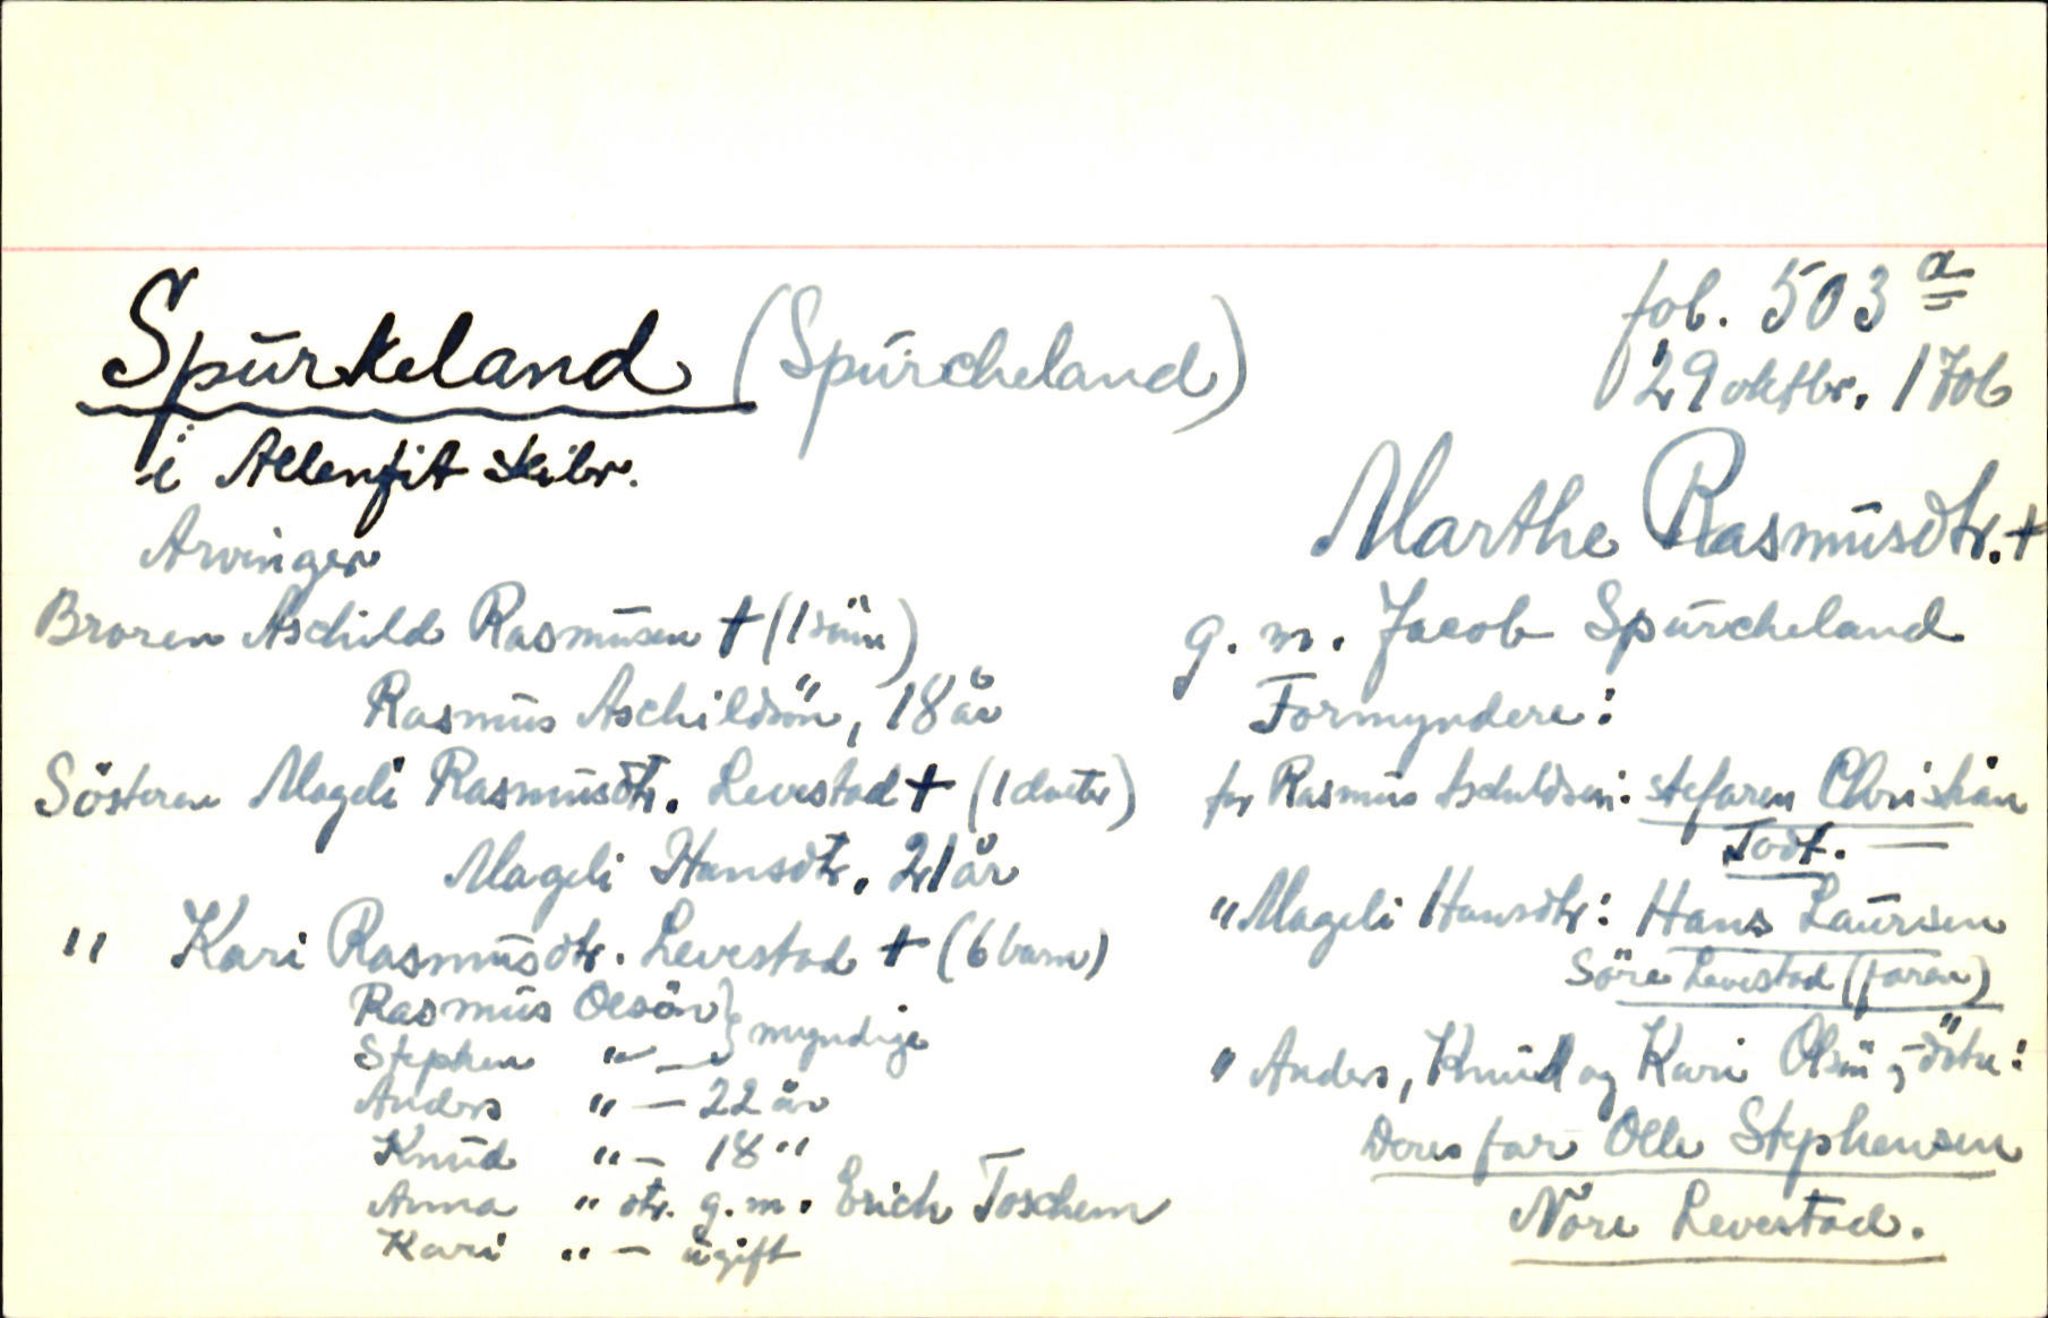 Spurkeland (Spurcheland)
i Allenfit skibr.
fol. 503 a
29 oktbr. 1706
Marthe Rasmusdtr. †
g. m. Jacob Spurcheland
Arvinger
Broren Aschild Rasmusen † (1 sönn)
Rasmus Aschildsön, 18 år
Sösteren Mageli Rasmusdtr. Levestad † (1 dotter)
Mageli Hansdtr. 21 år
" Kari Rasmusdtr. Levestad † (6 barn)
Rasmus Olsön } myndige
Stephen " —
Anders " — 22 år
Knud " — 18 "
Anna " dtr. g. m. Erich Toschem
Kari " — ugift
Formyndere:
for Rasmus Aschildsen: stefaren Christian
Todt.
" Mageli Hansdtr: Hans Laursen
Söre Levestad (faren)
" Anders, Knud og Kari Olsön, -döttre:
Deres far Olle Stephensen
Nöre Levestad.